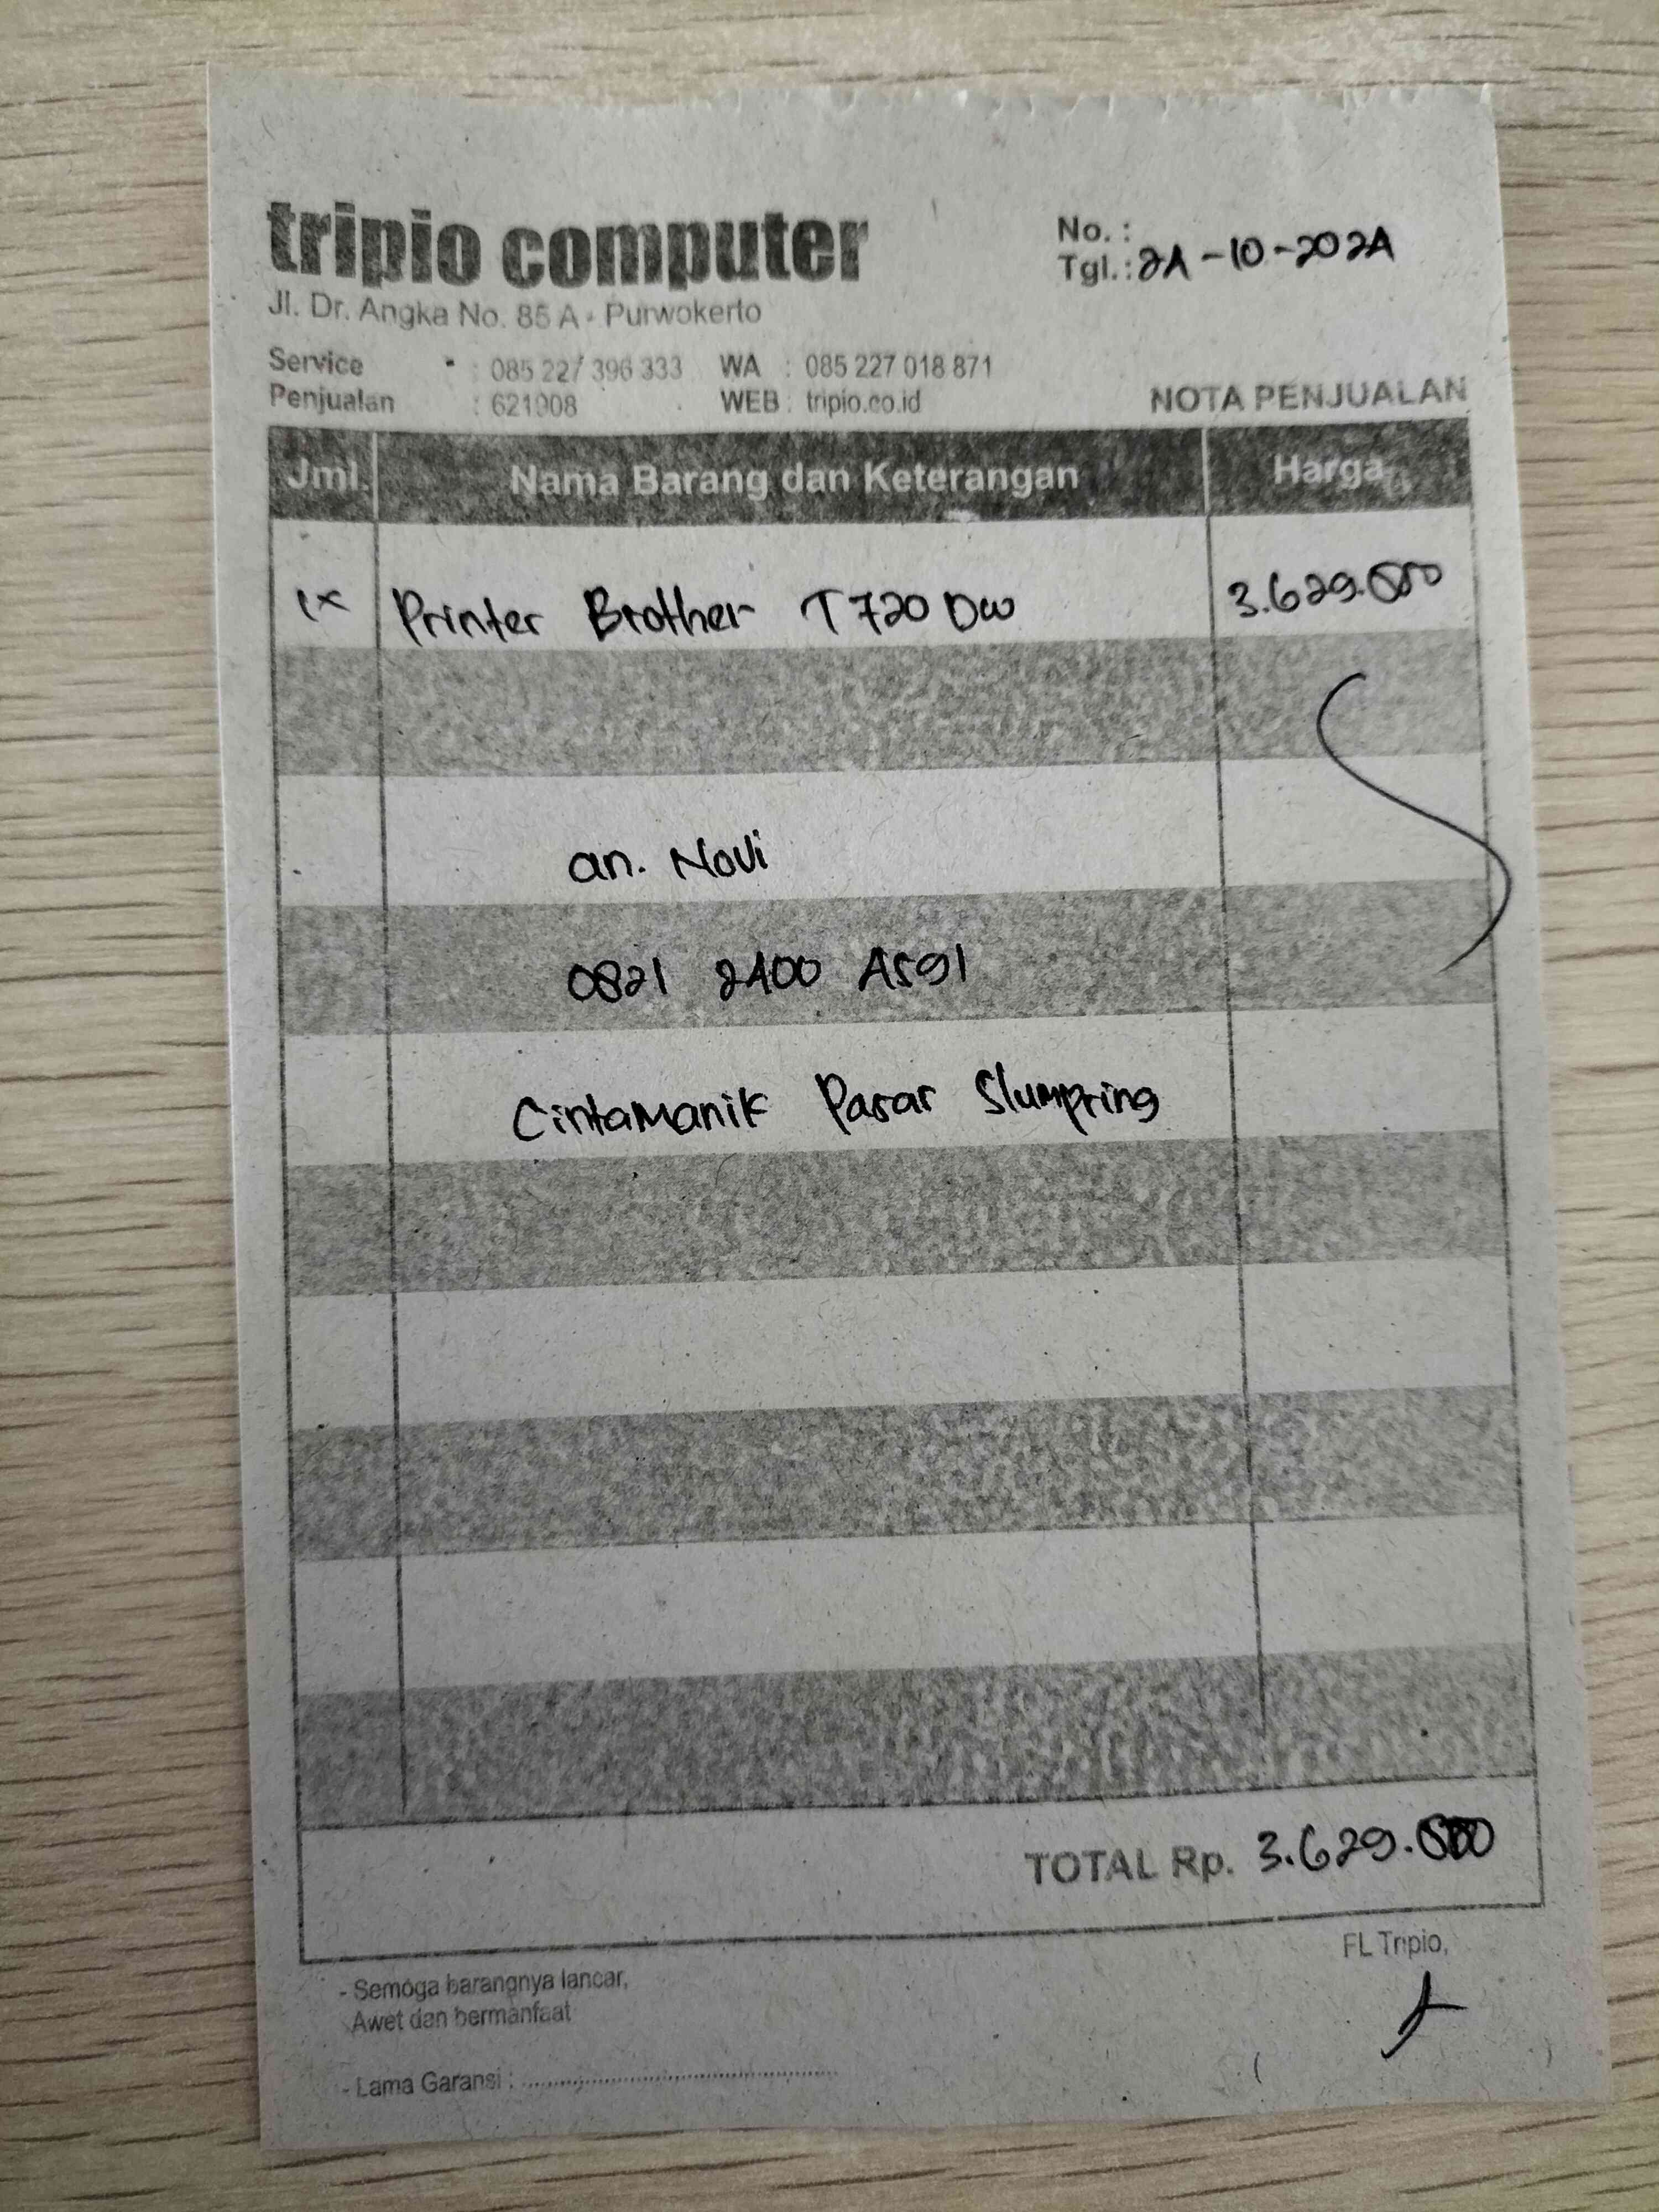 tripio computer
No. :
Tgl. : 24-10-2024
Jl. Dr. Angka No. 85 A - Purwokerto
Service : 085 227 396 333 WA : 085 227 018 871
Penjualan : 621908 WEB : tripio.co.id
NOTA PENJUALAN
Jml. Nama Barang dan Keterangan Harga
1x Printer Brother T720 DW 3.629.000
an. Novi
0821 2400 4591
Cintamanik Pasar Slumpring
TOTAL Rp. 3.629.000
FL Tripio,
- Semoga barangnya lancar,
Awet dan bermanfaat
- Lama Garansi : ..........